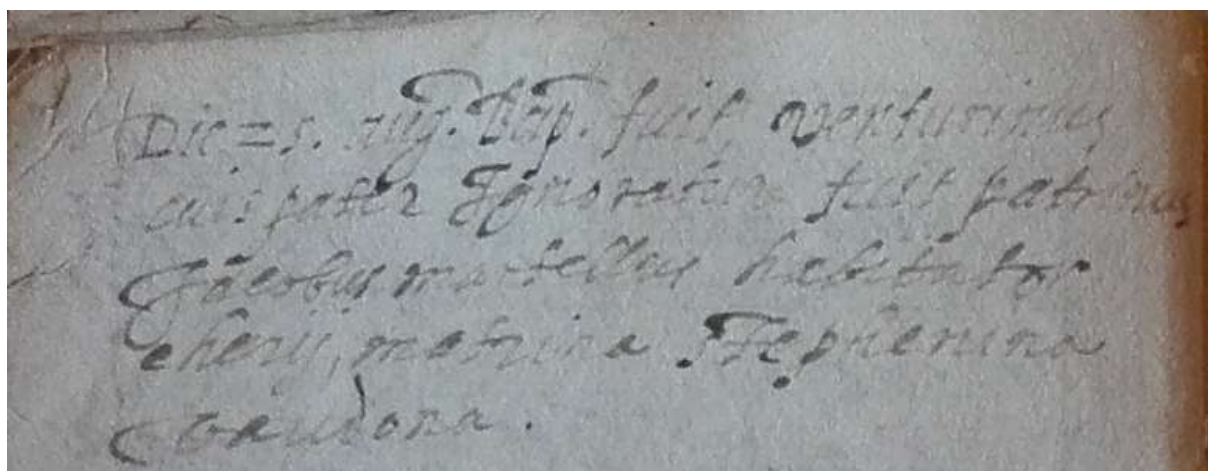 Die = 5. aug. bap. fuit venturinus
cuis pater Ignoratur fuit patrinus
Jacobus martellus habitator
cherij, matrina Stephenina